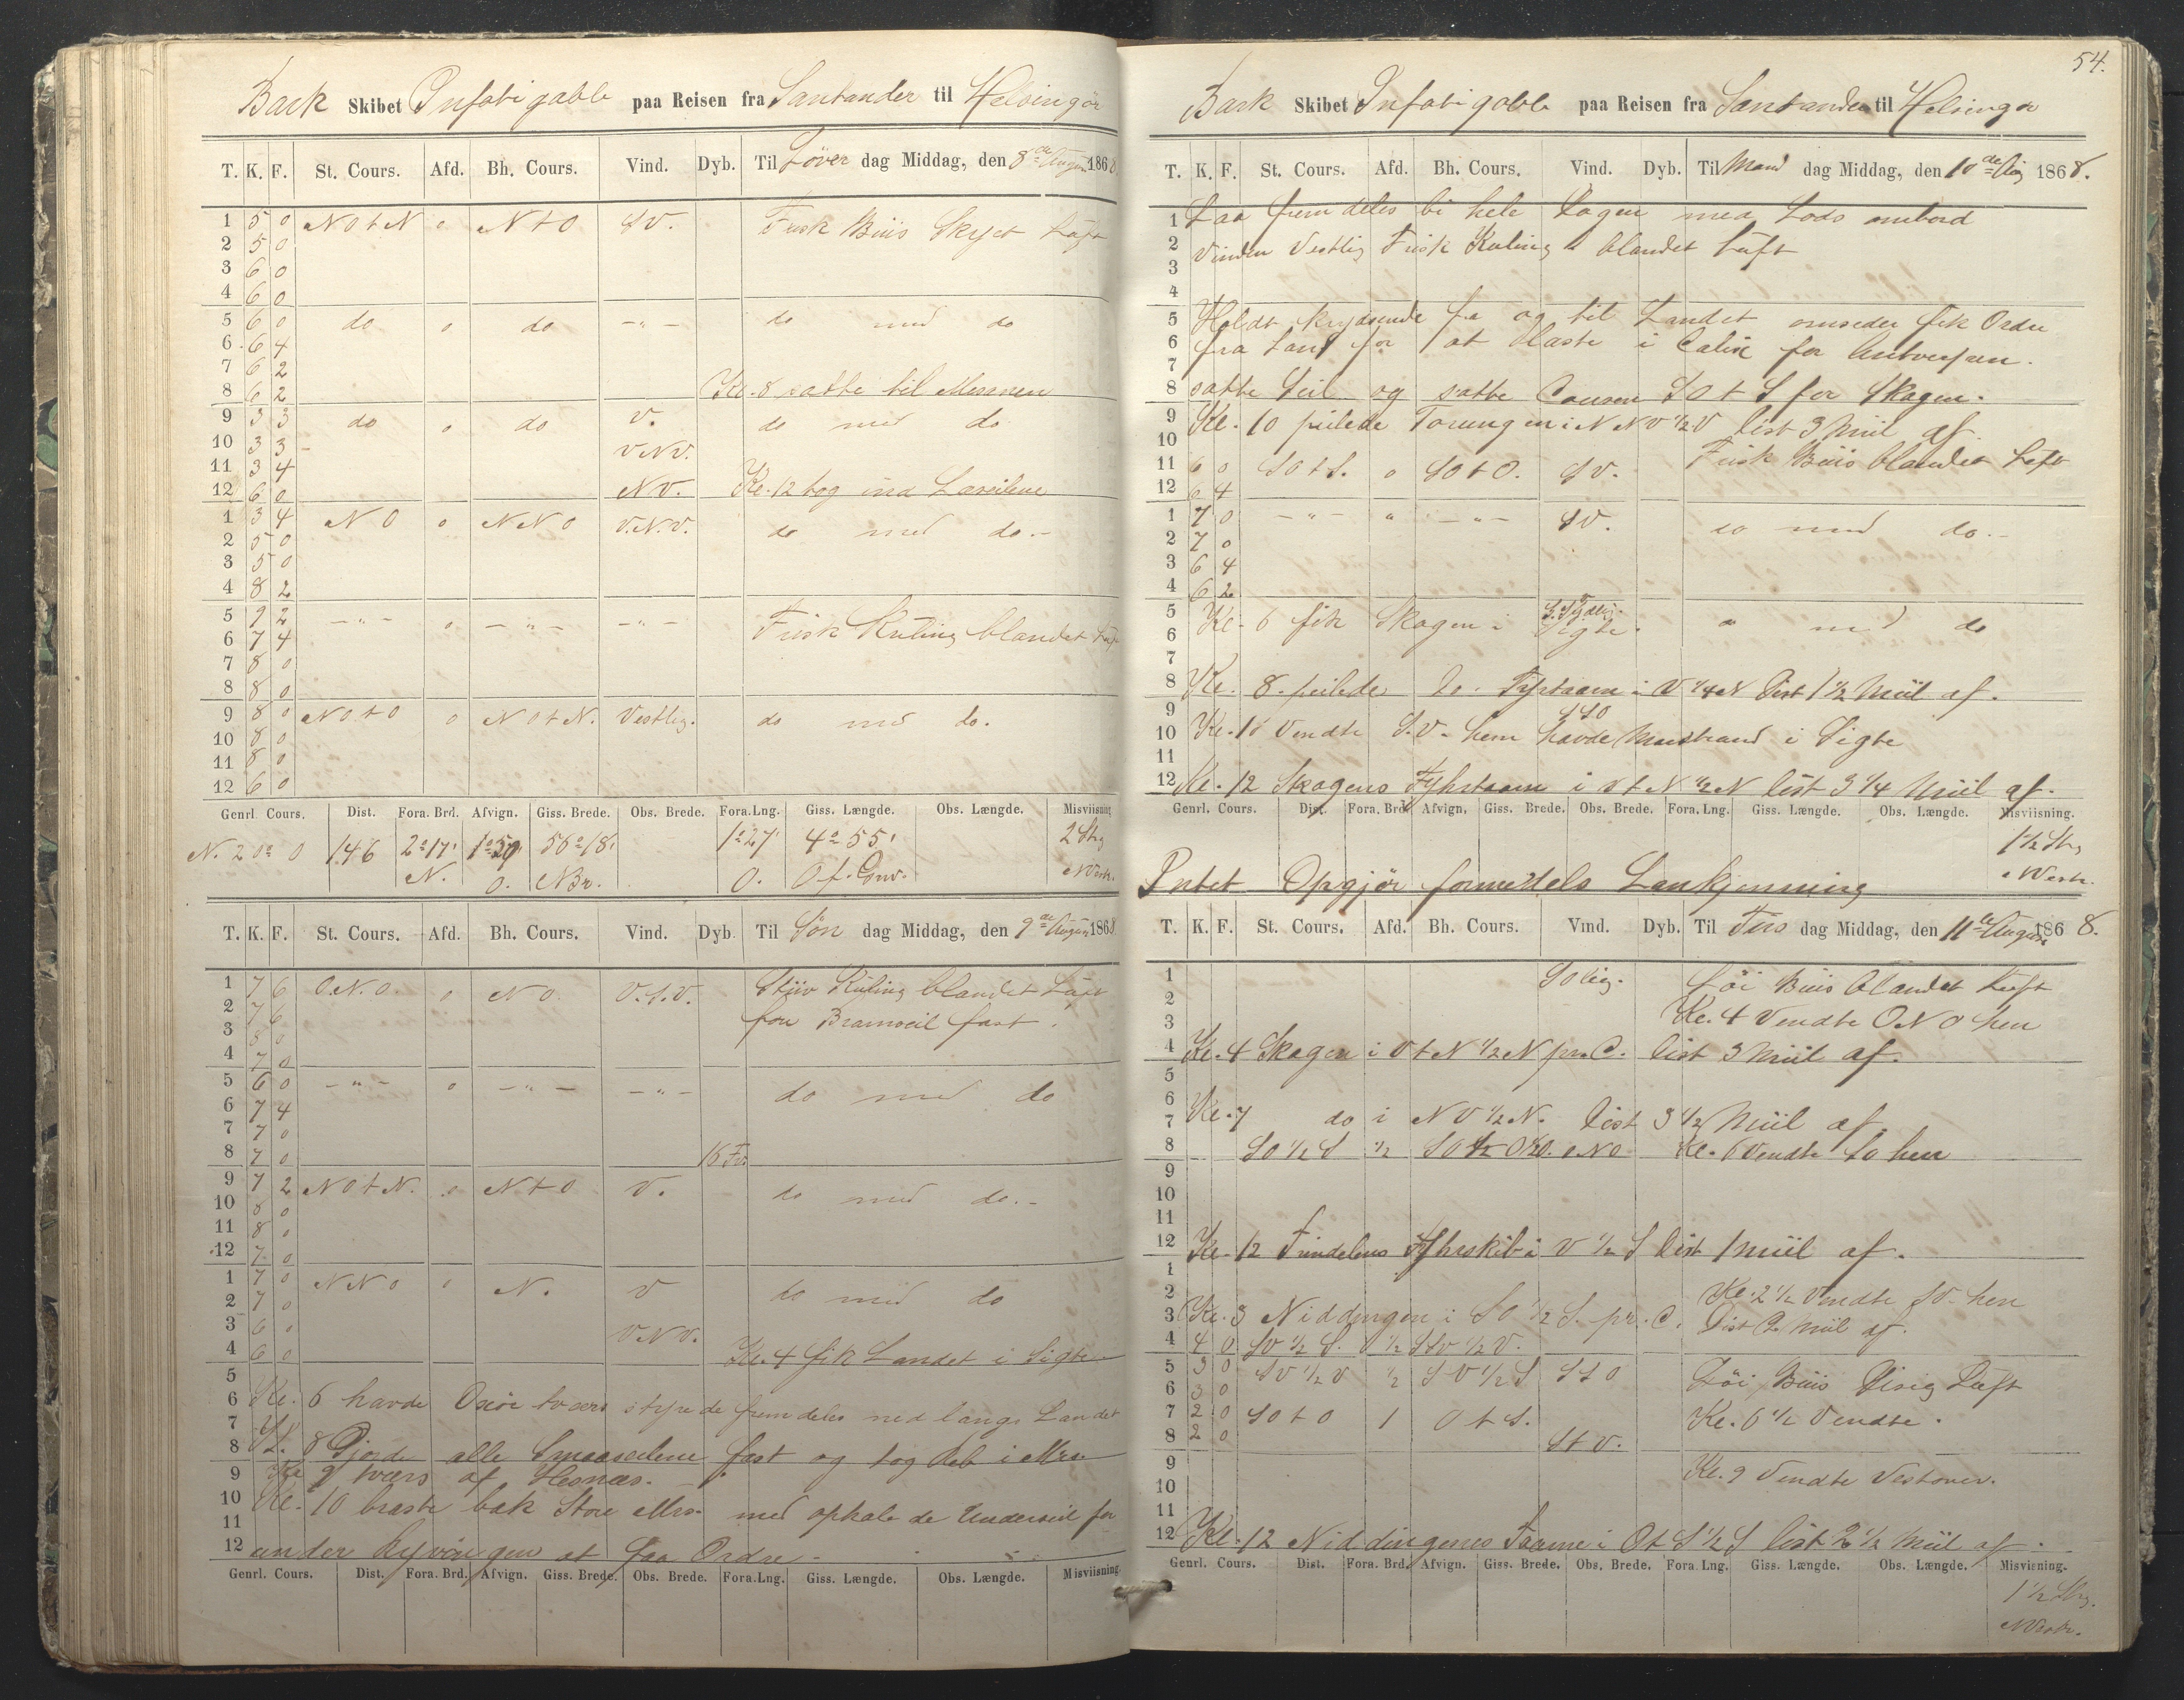 Bark Skibet Infatigable paa Reisen fra Santander til Helsingør
T. K. F. St. Cours. Afd. Bh. Cours. Vind. Dyb. Til Löver dag Middag, den 8de August 1868.
1 5 0 NOtN 0 NtO SV. Frisk Briis Skyet Luft
2 5 0
3 6 0
4 6 0
5 6 0 do 0 do -"- do med do
6 6 4
7 6 2
8 6 2 Kl. 8 satte til Mersene
9 3 3 do 0 do V. do med do
10 3 3 VNV.
11 3 4
12 6 0 NV. Kl. 12 tog ind Læseilene
1 3 4 NO 0 NNO V.N.V. do med do.-
2 5 0
3 5 0
4 8 2
5 9 2 -"- 0 -"- -"- Frisk Kuling blandet Luft
6 7 4
7 8 0
8 8 0
9 8 0 NOtO 0 NOtN. Vestlig. do med do.
10 8 0
11 8 0
12 6 0
Genrl. Cours. Dist. Fora. Brd. Afvign. Giss. Brede. Obs. Brede. Fora.Lng. Giss. Længde. Obs. Længde. Misviisning
N. 20° O 146 2°17' 1°50' 56°18' 1°27' 4°55' 2 Str
N. O. NBr. O. O f. Grw. NVestr.
T. K. F. St. Cours. Afd. Bh. Cours. Vind. Dyb. Til Søn dag Middag, den 9de August 1868
1 7 6 O.N.O. 0 NO. V.S.V. Stiiv Kuling blandet Luft
2 7 6 for Bramseil fast.
3 8 0
4 7 0
5 6 0 -"- 0 -"- -"- do med do
6 7 4
7 7 0
8 7 0 16 Fv.
9 7 2 NOtN. 0 NtO V. do med do.-
10 8 0
11 8 0
12 7 0
1 7 0 NNO 0 N. V do med do
2 7 0
3 6 0 VNV.
4 6 0 Kl. 4 fik Landet i Sigte
5
6 Kl. 6 havde Oxöe tværs styrede fremdeles ned langs Landet
7
8 Kl. 8 Gjorde alle Smaaseilene fast og tog Reb i Mrs.
9 Kl 9 tværs af Hesnæs.
10 Kl. 10 braste bak Store Mrs. med ophalede Underseil for
11
12 under Ryvingen at faa Ordre -
Genrl. Cours. Dist. Fora. Brd. Afvign. Giss. Brede. Obs. Brede. Fora.Lng. Giss. Længde. Obs. Længde. Misviisning
54.
Bark Skibet Infatigable paa Reisen fra Santander til Helsingør
T. K. F. St. Cours. Afd. Bh. Cours. Vind. Dyb. Til Man dag Middag, den 10de Aug 1868.
1 Laa fremdeles bi hele Dagen med Lods ombord
2 Vinden Vestlig Frisk Kuling blandet Luft
3
4
5 Holdt krydsende fra og til Landet omsider fik Ordre
6 fra Land for at laste i Calix for Antverpen.
7
8 satte Seil og satte Coursen SOtS for Skagen.
9 Kl. 10 peilede Torungen i NNV½V Dist 3 Miil af.
10 Frisk Briis blandet Luft
11 6 0 SOtS. 0 SOtO. SV.
12 6 4
1 7 0 -"- " -"- SV. do med do.-
2 7 0
3 6 4
4 6 2
5 Kl. 6 fik Skagen i Sigte. S. Sydlig. " med do
6
7
8 Kl. 8 peilede do. Fyrtaarn i V¼N Dist 1½ Miil af.
9 SSO
10 Kl. 10 Vendte S.V. hen havde Marstrand i Sigte
11
12 Kl. 12 Skagens Fyhrtaarn i VtN½N Dist 3¼ Miil af.
Genrl. Cours. Dist. Fora. Brd Afvign. Giss. Brede. Obs. Brede. Fora.Lng. Giss. Længde. Obs. Længde. Misviisning.
1½ Str
NVestr.
Intet Opgjör formedels Lankjenning
T. K. F. St. Cours. Afd. Bh. Cours. Vind. Dyb. Til Tirs dag Middag, den 11te August 1868.
1 SOlig. Löi Briis blandet Luft
2 Kl. 4 Vendte ONO hen
3
4 Kl. 4 Skagen i VtN½N pr. C. Dist 3 Miil af.
5
6
7 Kl. 7 do i NV½N. Dist 3½ Miil af
8 SO½S ½ Kl. 6 Vendte SO hen
9
10
11
12 Kl. 12 Trindelens Fyhrskib i V½S Dist 1 Miil af.
1
2 Kl. 2½ Vendte SV hen
3 Kl. 3 Niddingen i SO½S. pr. C. Dist 2 Miil af.
4 4 0 SV½S. ½ SSV½V.
5 3 0 SV½V ½ SV½S SSO Löi Briis Disig Luft
6 3 0
7 2 0 SOtO 1 OtS. Kl. 6½ Vendte.
8 2 0 StV.
9 Kl. 9 Vendte Vestover.
10
11
12 Kl. 12 Niddingenes Taarne i OtS½S Dist 2½ Miil af.
Genrl. Cours. Dist. Fora. Brd. Afvign. Giss. Brede. Obs. Brede. Fora.Lng. Giss. Længde. Obs. Længde. Misvisning.
1½ Str.
NVestr.